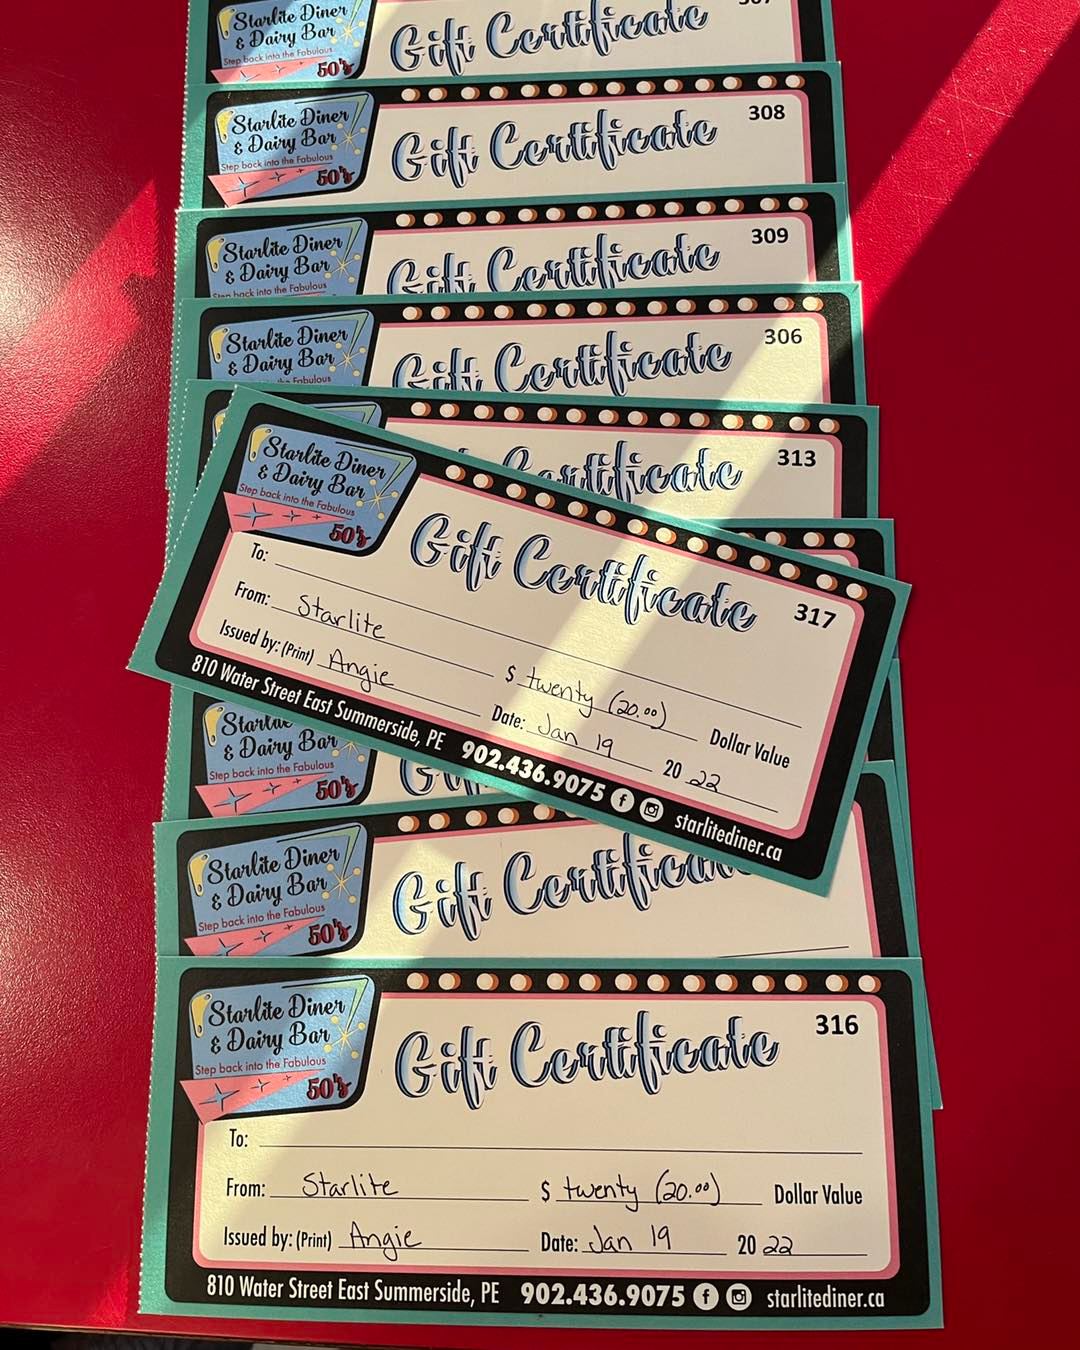 Starlite Diner
& Dairy Bar
Step back into the Fabulous
50's
Gift Certificate
307
Starlite Diner
& Dairy Bar
Step back into the Fabulous
50's
Gift Certificate
308
Starlite Diner
& Dairy Bar
Step back into the Fabulous
Gift Certificate
309
Starlite Diner
& Dairy Bar
the Fabulous
Gift Certificate
306
Certificate
313
Starlite Diner
& Dairy Bar
Step back into the Fabulous
50's
Gift Certificate
317
To:
From: Starlite
$ twenty (20.00) Dollar Value
Issued by: (Print) Angie
Date: Jan 19 20 22
810 Water Street East Summerside, PE 902.436.9075 starlitediner.ca
Starlite
& Dairy Bar
Step back into the Fabulous
50's
Starlite Diner
& Dairy Bar
Step back into the Fabulous
50's
Gift Certificate
Starlite Diner
& Dairy Bar
Step back into the Fabulous
50's
Gift Certificate
316
To:
From: Starlite $ twenty (20.00) Dollar Value
Issued by: (Print) Angie Date: Jan 19 20 22
810 Water Street East Summerside, PE 902.436.9075 starlitediner.ca